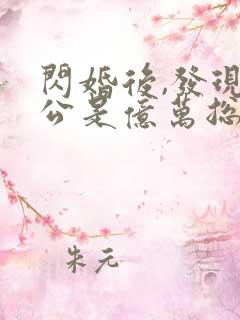 閃婚後,發現
公是億萬總
朱元